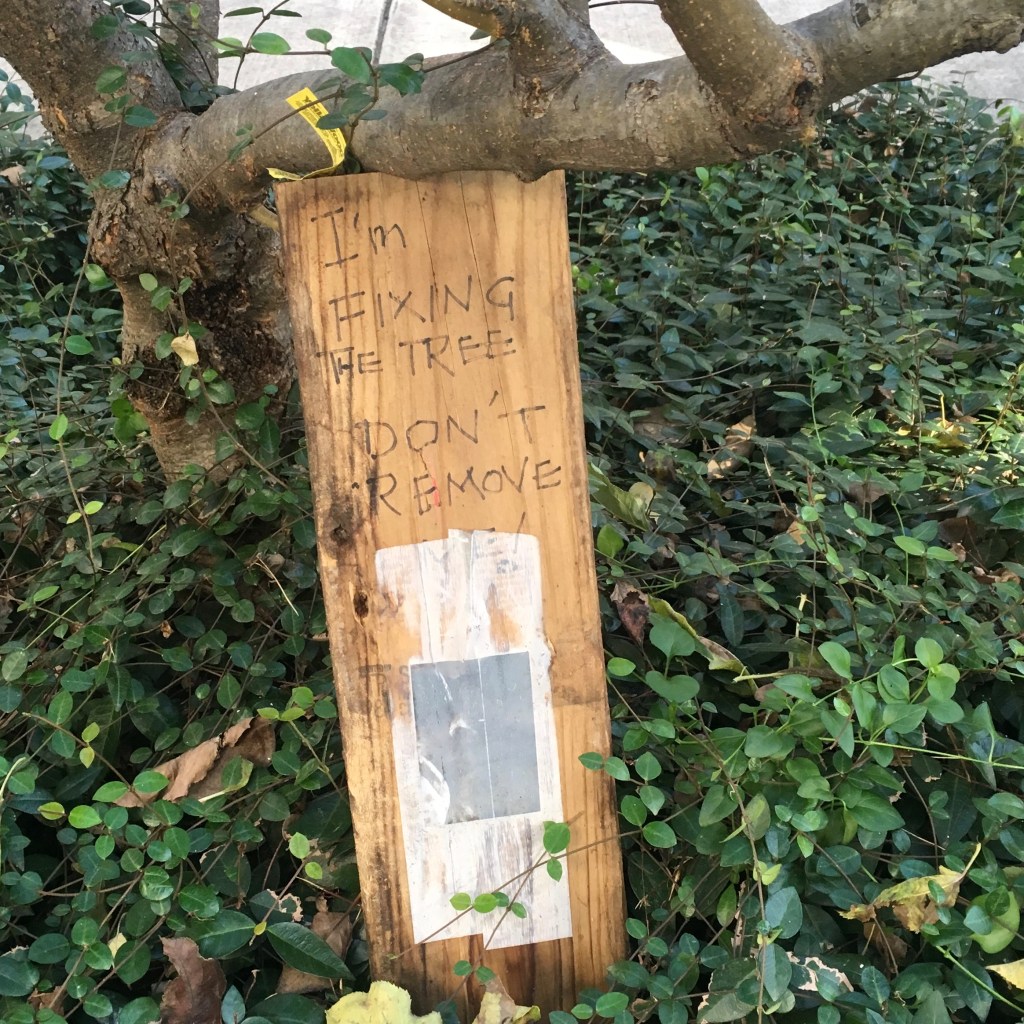 I'm
FIXING
THE TREE
DON'T
REMOVE